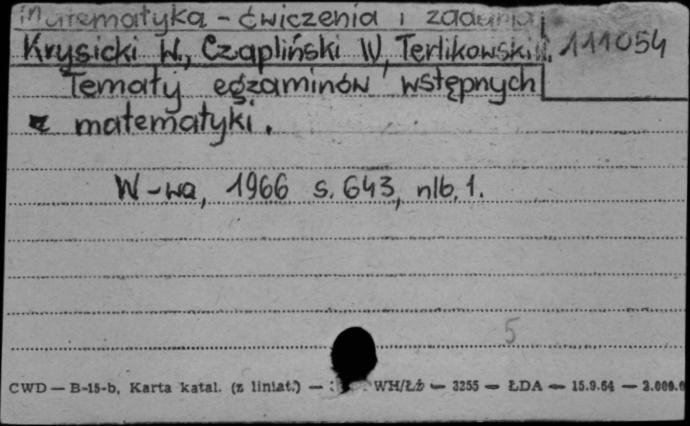 Matematyka - ćwiczenia i zadania
Krysicki W., Czapliński W, Terlikowski
111054
Tematy egzaminów wstępnych
z matematyki.
W-wa, 1966 s. 643, nlb. 1.
5
CWD — B-15-b, Karta katal. (z liniat.) — WH/Łb — 3255 — ŁDA — 15.9.64 —